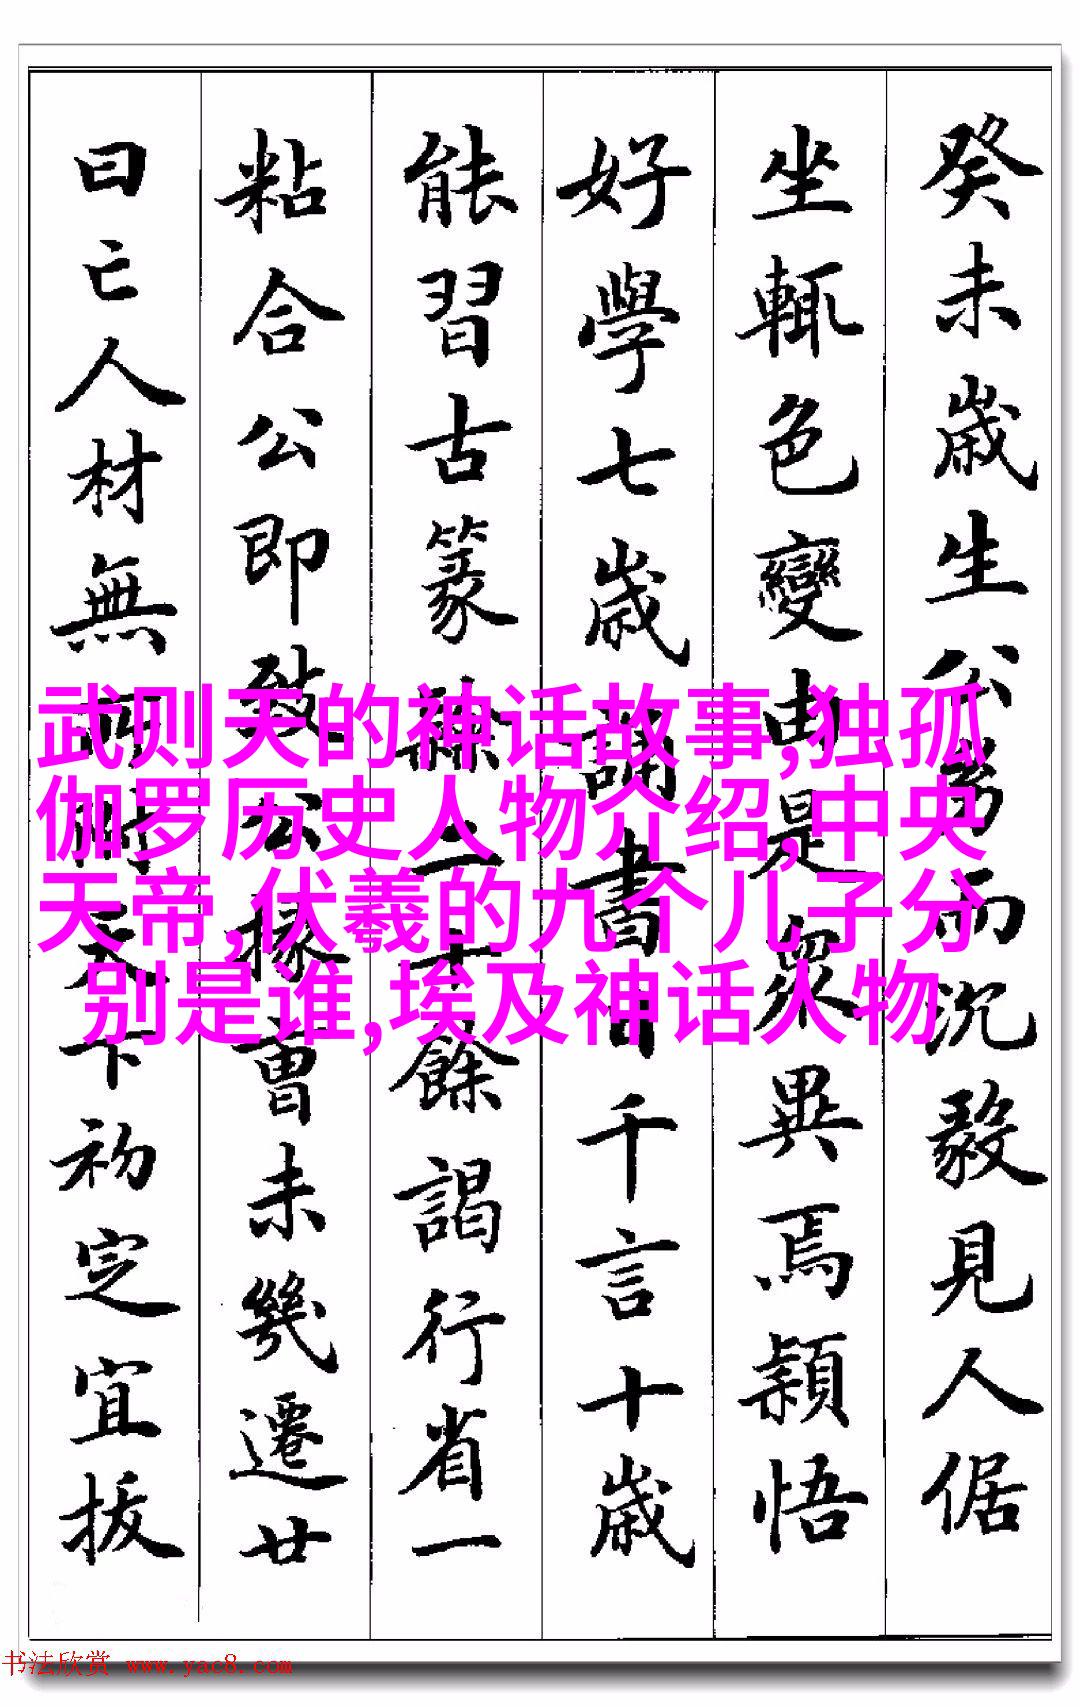 癸未歲生公為而沉毅見人倨
坐輒色變由是眾異焉穎悟
好學七歲誦書日千言十歲
能習古篆隸二十餘謁行省一
粘合公即致公掾曹未幾遷廿
曰亡人材無所時天下初定宜拔
武则天的神话故事,独孤
伽罗历史人物介绍,中央
天帝,伏羲的九个儿子分
别是谁,埃及神话人物
书法欣赏 www.yac8.com